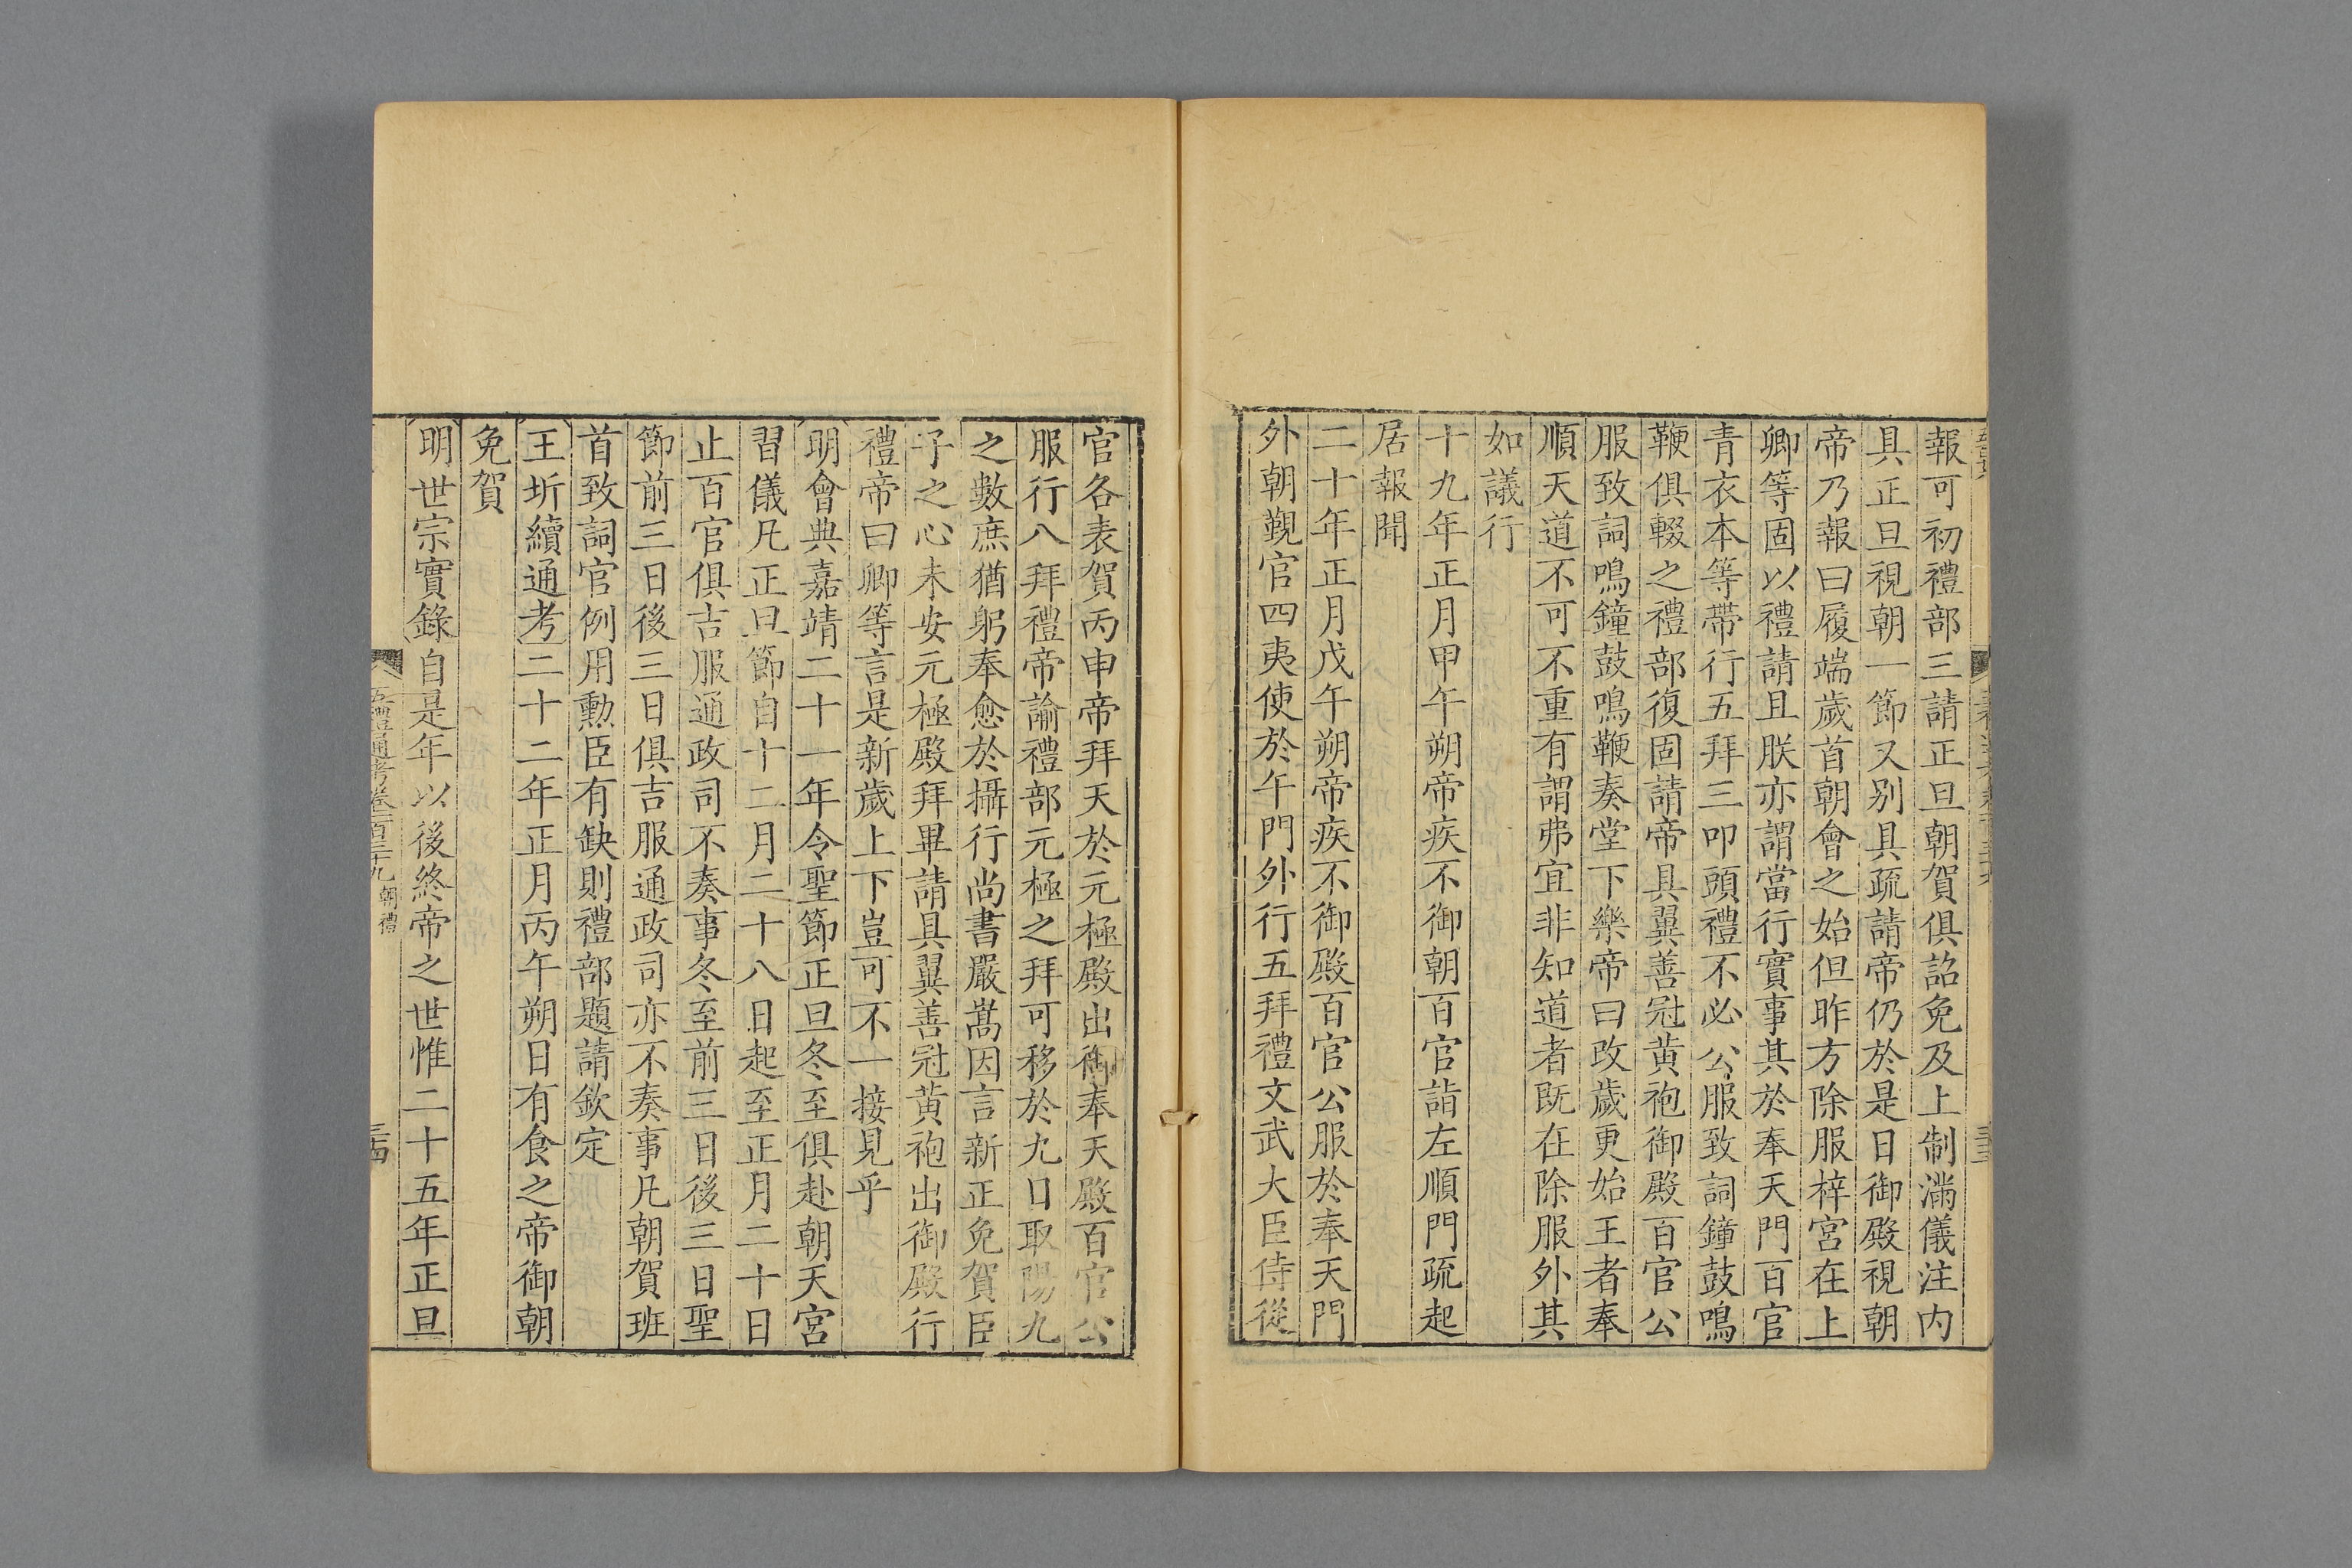 報可初禮部三請正旦朝賀俱詔免及上制滿儀注内
具正旦視朝一節又别具疏請帝仍於是日御殿視朝
帝乃報曰履端歲首朝會之始但昨方除服梓宮在上
卿等固以禮請且朕亦謂當行實事其於奉天門百官
青衣本等帶行五拜三叩頭禮不必公服致詞鐘鼓鳴
鞭俱輟之禮部復固請帝具翼善冠黄袍御殿百官公
服致詞鳴鐘鼓鳴鞭奏堂下樂帝曰改歲更始王者奉
順天道不可不重有謂弗宜非知道者既在除服外其
如議行
十九年正月甲午朔帝疾不御朝百官詣左順門疏起
居報聞
二十年正月戊午朔帝疾不御殿百官公服於奉天門
外朝覲官四夷使於午門外行五拜禮文武大臣侍從
官各表賀丙申帝拜天於元極殿出御奉天殿百官公
服行八拜禮帝諭禮部元極之拜可移於九日取陽九
之數庶猶躬奉愈於攝行尚書嚴嵩因言新正免賀臣
子之心未安元極殿拜畢請具翼善冠黄袍出御殿行
禮帝曰卿等言是新歲上下豈可不一接見乎
明會典嘉靖二十一年令聖節正旦冬至俱赴朝天宮
習儀凡正旦節自十二月二十八日起至正月二十日
止百官俱吉服通政司不奏事冬至前三日後三日聖
節前三日後三日俱吉服通政司亦不奏事凡朝賀班
首致詞官例用勳臣有缺則禮部題請欽定
王圻續通考二十二年正月丙午朔日有食之帝御朝
免賀
明世宗實錄自是年以後終帝之世惟二十五年正旦
五禮通考卷一百三十九 朝禮
三四